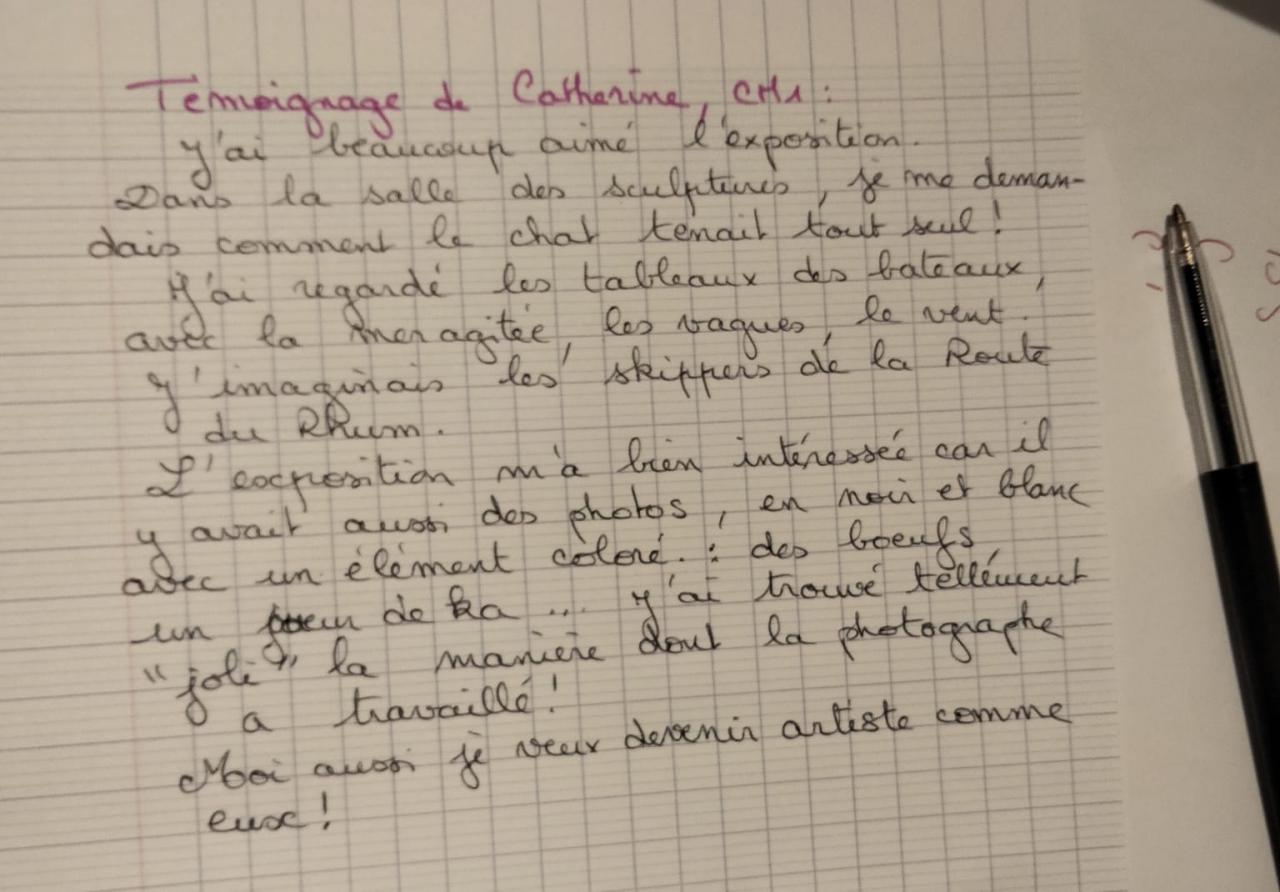 Témoignage de Catherine, CM1 :
J'ai beaucoup aimé l'exposition.
Dans la salle des sculptures, je me deman-
dais comment le chat tenait tout seul !
J'ai regardé les tableaux des bateaux,
avec la mer agitée, les vagues, le vent.
J'imaginais les skippers de la Route
du Rhum.
L'exposition m'a bien intéressée car il
y avait aussi des photos, en noir et blanc
avec un élément coloré. : des boeufs,
un de ... J'ai trouvé tellement
"joli" la manière dont la photographe
a travaillé !
Moi aussi je veux devenir artiste comme
eux !